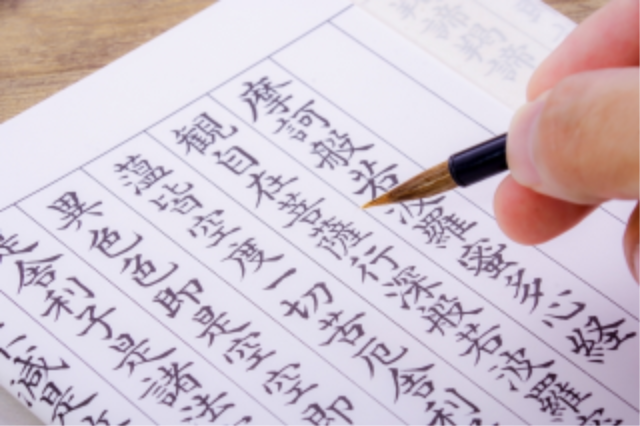 諦羯諦
摩訶般若波羅蜜多心経
観自在菩薩行深般若波羅
蘊皆空度一切苦厄舎利
異色色即是空空即
是舎利子是諸法
減是